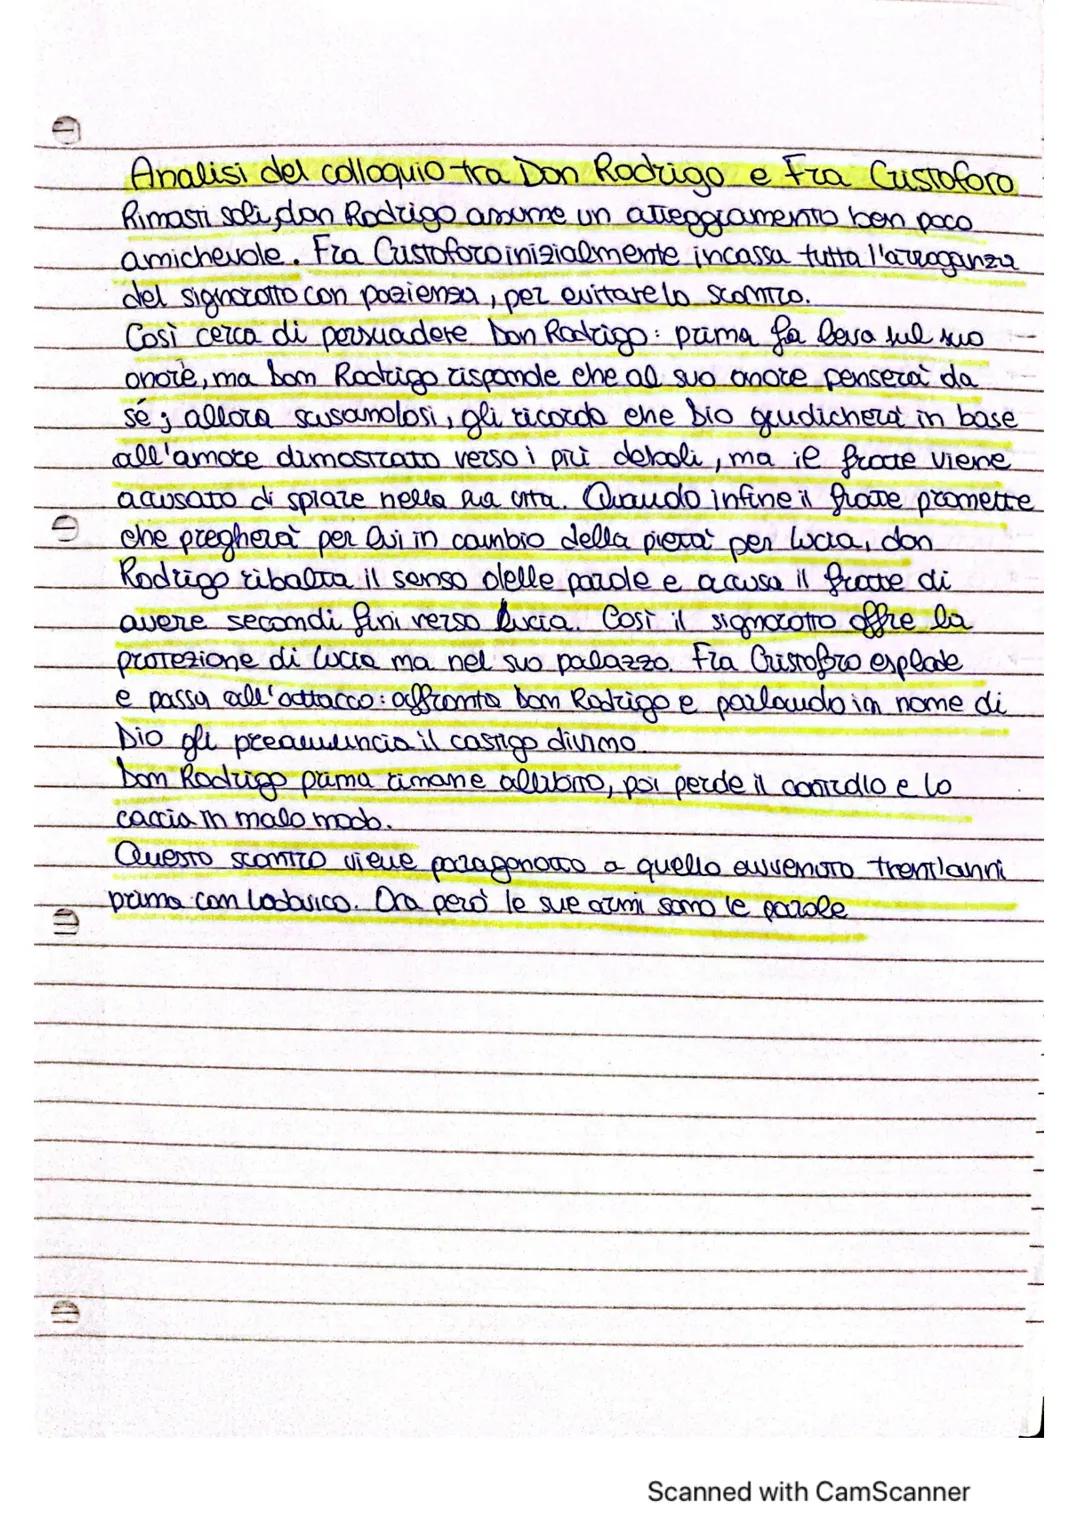 Analisi del colloquio tra Don Rodrigo e Fra Cristoforo
Rimasti soli, don Rodrigo assume un atteggiamento ben poco
amichevole. Fra Cristoforo inizialmente incassa tutta l'arroganza
del signorotto con pazienza, per evitare lo scontro.
Così cerca di persuadere Don Rodrigo: prima fa leva sul suo
onore, ma Don Rodrigo risponde che al suo onore penserà da
sé; allora scusandosi, gli ricorda che Dio giudicherà in base
all'amore dimostrato verso i più deboli, ma il frate viene
accusato di spiare nella sua vita. Quando infine il frate promette
che pregherà per lui in cambio della pietà per Lucia, don
Rodrigo ribalta il senso delle parole e accusa il frate di
avere secondi fini verso Lucia. Così il signorotto offre la
protezione di Lucia ma nel suo palazzo. Fra Cristoforo esplode
e passa all'attacco: affronta Don Rodrigo e parlando in nome di
Dio gli preannuncia il castigo divino.
Don Rodrigo prima rimane allibito, poi perde il controllo e lo
caccia in malo modo.
Questo scontro viene paragonato a quello avvenuto trent'anni
prima con Lodovico. Ora però le sue armi sono le parole
Scanned with CamScanner